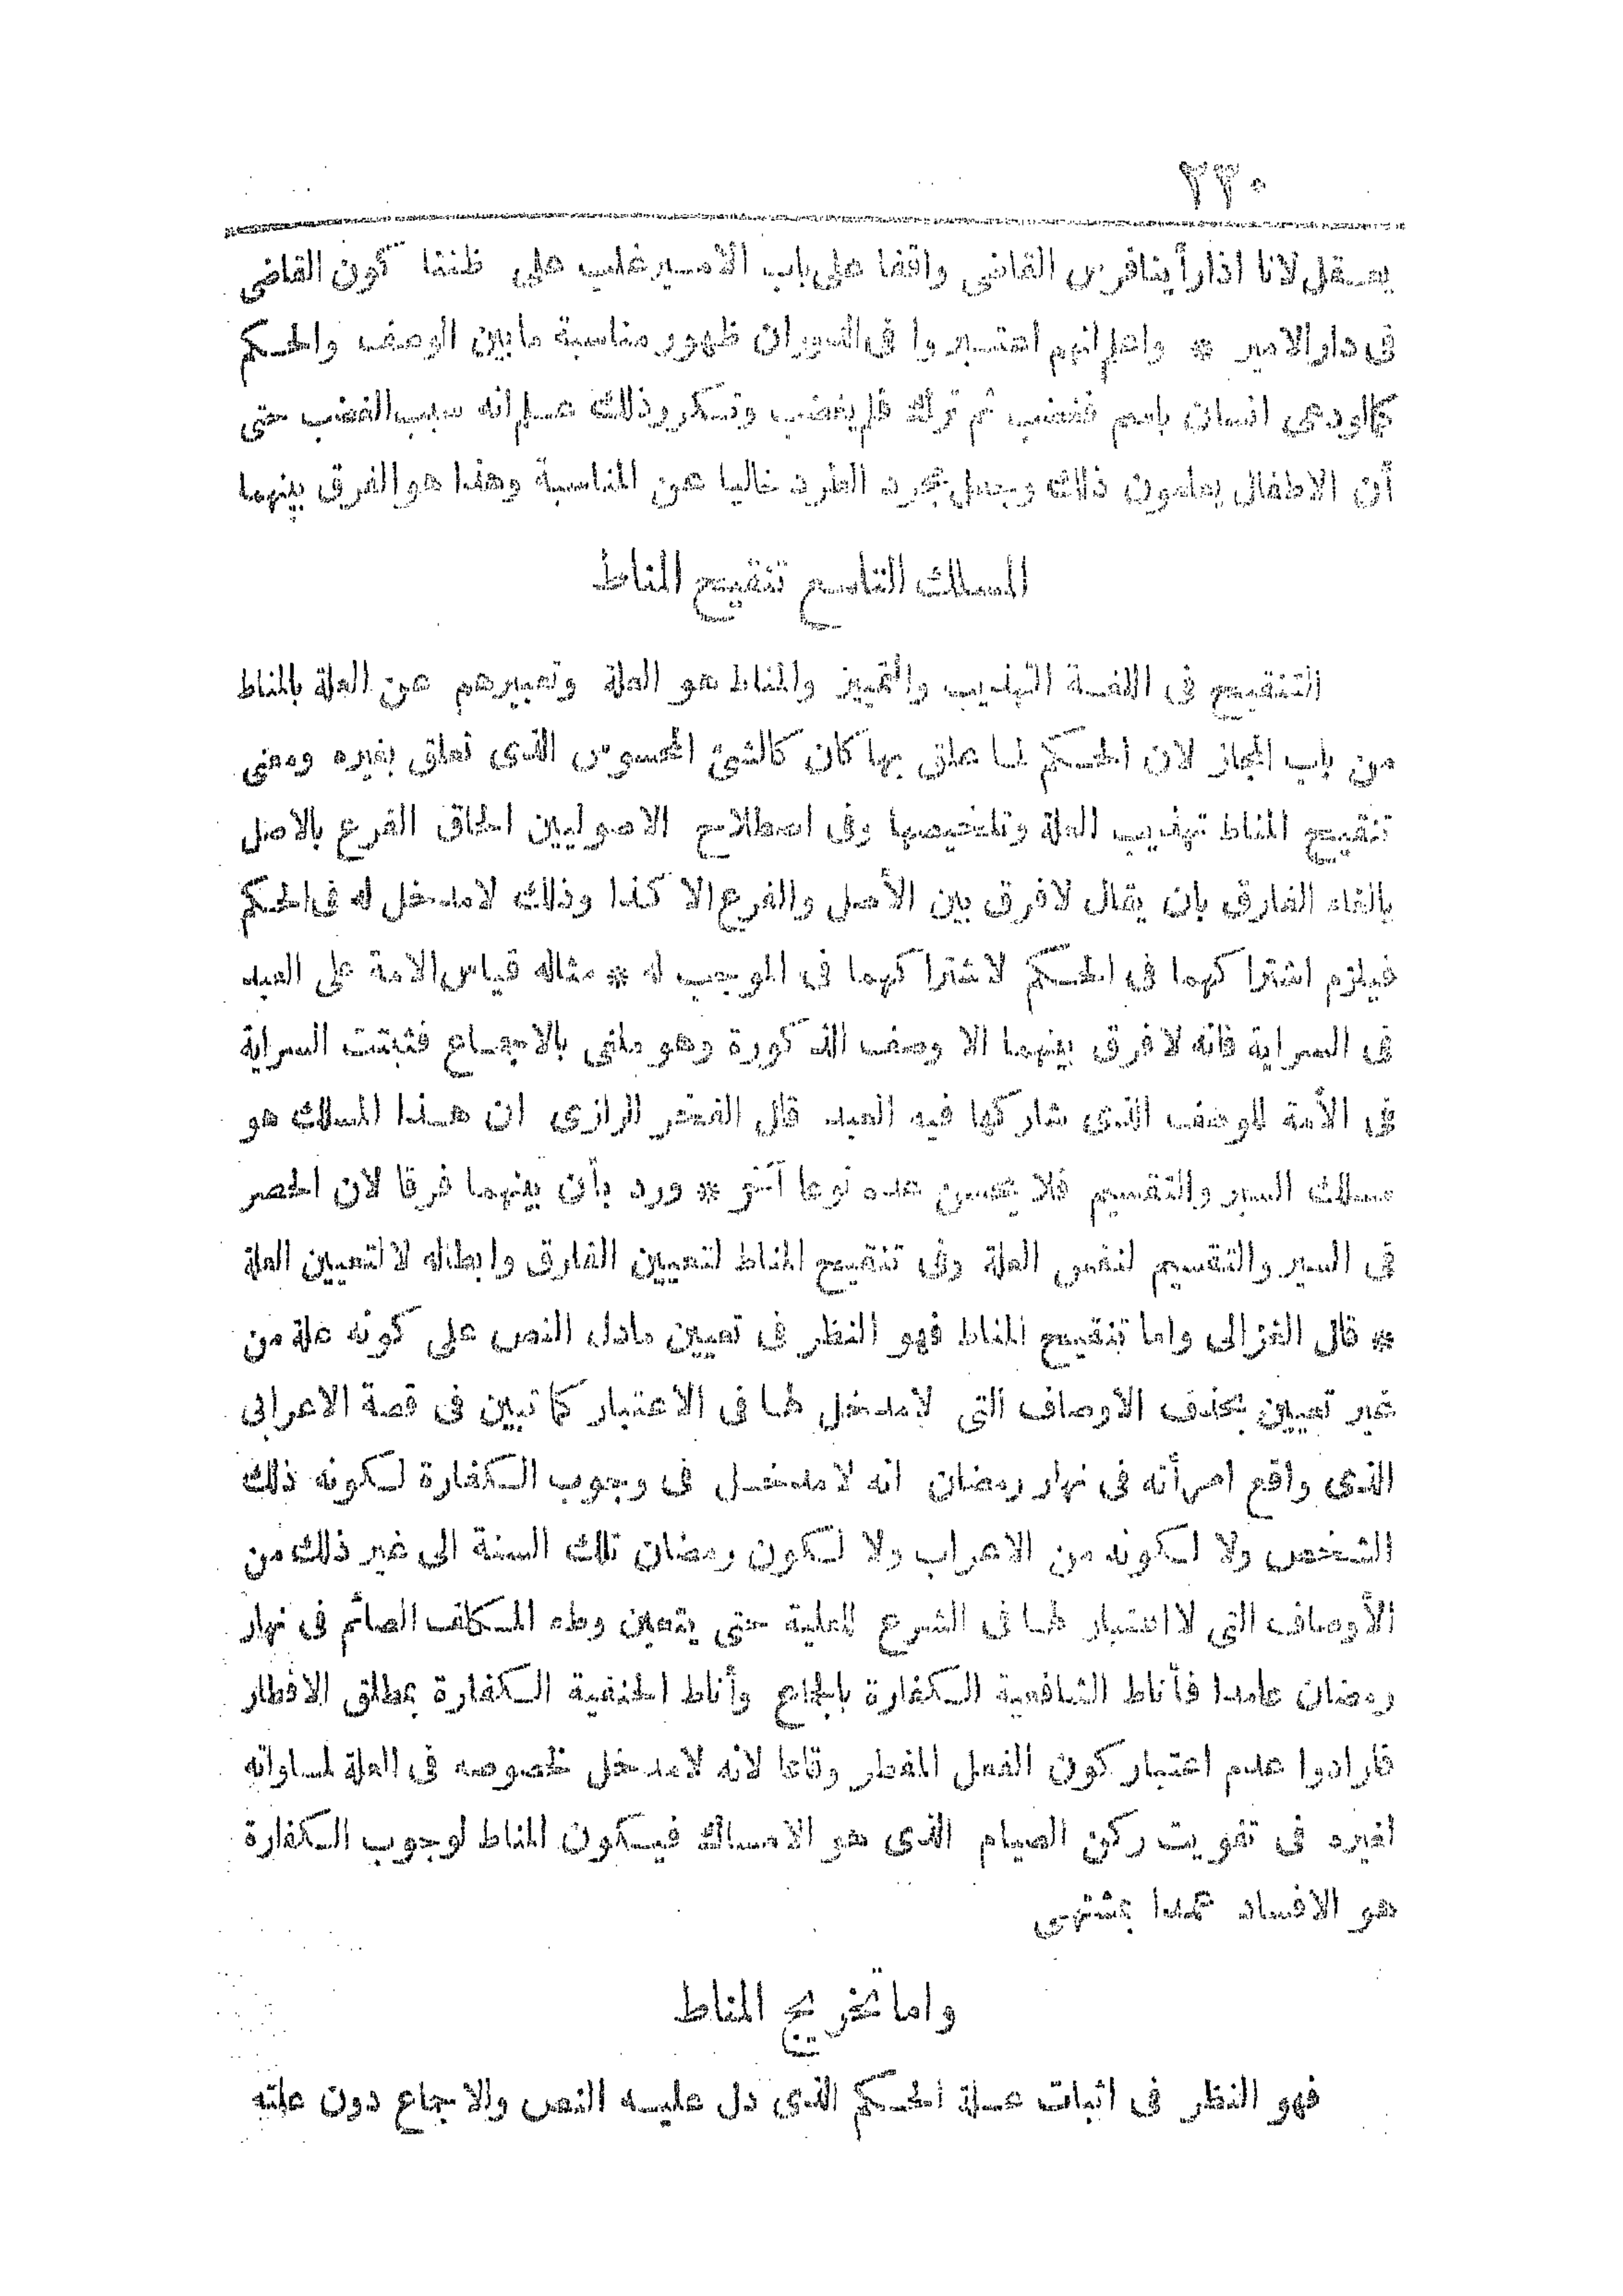 ٢٣٠
يعقل لانا اذا رأينا فرس القاضى واقفا على باب الامير غلب على ظننا كون القاضى
فى دار الامير * واعلم انهم اعتبروا فى الدوران ظهور مناسبة ما بين الوصف والحكم
كما لو دعى انسان باسم فغضب ثم ترك فلم يغضب وتكرر ذلك علم انه سبب الغضب حتى
أن الاطفال يعلمون ذلك وجعل مجرد الطرد خاليا عن المناسبة وهذا هو الفرق بينهما
المسلك التاسع تنقيح المناط
التنقيح فى اللغة التهذيب والتمييز والمناط هو العلة وتعبيرهم عن العلة بالمناط
من باب المجاز لان الحكم لما علق بها كان كالشئ المحسوس الذى تعلق بغيره ومعنى
تنقيح المناط تهذيب العلة وتلخيصها وفى اصطلاح الاصوليين الحاق الفرع بالاصل
بالغاء الفارق بان يقال لا فرق بين الأصل والفرع الا كذا وذلك لا مدخل له فى الحكم
فيلزم اشتراكهما فى الحكم لاشتراكهما فى الموجب له * مثاله قياس الامة على العبد
فى السراية فانه لا فرق بينهما الا وصف الذكورة وهو ملغى بالاجماع فثبتت السراية
فى الأمة للوصف الذى شاركها فيه العبد قال الفخر الرازى ان هذا المسلك هو
مسلك السبر والتقسيم فلا يحسن عده نوعا آخر * ورد بأن بينهما فرقا لان الحصر
فى السبر والتقسيم لنفس العلة وفى تنقيح المناط لتعيين الفارق وابطاله لا لتعيين العلة
* قال الغزالى واما تنقيح المناط فهو النظر فى تعيين ما دل النص على كونه علة من
غير تعيين بحذف الاوصاف التى لا مدخل لها فى الاعتبار كما تبين فى قصة الاعرابى
الذى واقع امرأته فى نهار رمضان انه لا مدخل فى وجوب الكفارة لكونه ذلك
الشخص ولا لكونه من الاعراب ولا لكون رمضان تلك السنة الى غير ذلك من
الأوصاف التى لا اعتبار لها فى الشرع للعلية حتى يتعين وطء المكلف الصائم فى نهار
رمضان عامدا فأناط الشافعية الكفارة بالجماع وأناط الحنفية الكفارة بمطلق الافطار
فارادوا عدم اعتبار كون الفعل المفطر وقاعا لانه لا مدخل لخصوصه فى العلة لمساواته
لغيره فى تفويت ركن الصيام الذى هو الامساك فيكون المناط لوجوب الكفارة
هو الافساد عمدا بمشتهى
واما تخريج المناط
فهو النظر فى اثبات علة الحكم الذى دل عليه النص والاجماع دون علته